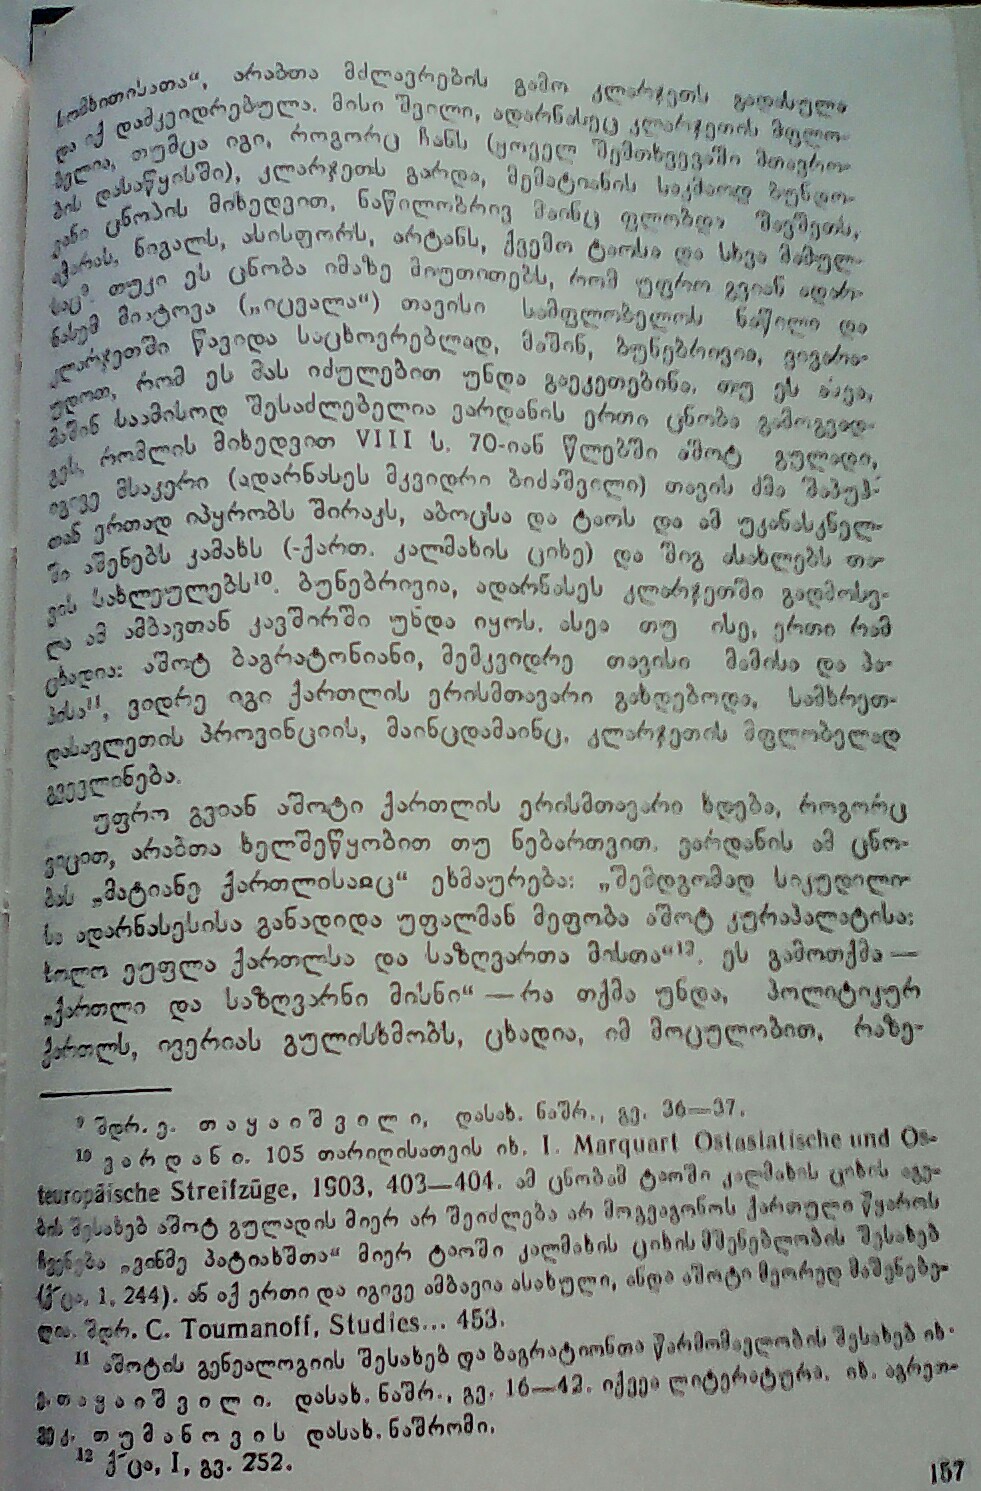 სომხითისათა“, არაბთა მძლავრების გამო კლარჯეთს გადასულა
და იქ დამკვიდრებულა. მისი შვილი, ადარნასეც კლარჯეთის მფლო-
ბელია, თუმცა იგი, როგორც ჩანს (ყოველ შემთხვევაში მთავრო-
ბის დასაწყისში), კლარჯეთს გარდა, მემატიანის საკმაოდ ბუნდო-
ვანი ცნობის მიხედვით, ნაწილობრივ მაინც ფლობდა შავშეთს,
აჭარას, ნიგალს, ასისფორს, არტანს, ქვემო ტაოსა და სხვა მამულ-
საც. თუკი ეს ცნობა იმაზე მიუთითებს, რომ უფრო გვიან ადარ-
ნასემ მიატოვა („იცვალა“) თავისი სამფლობელოს ნაწილი და
კლარჯეთში წავიდა საცხოვრებლად, მაშინ, ბუნებრივია, ვივარა-
უდოთ, რომ ეს მას იძულებით უნდა გაეკეთებინა. თუ ეს ასეა,
მაშინ საამისოდ შესაძლებელია ვარდანის ერთი ცნობა გამოგვად-
გეს, რომლის მიხედვით VIII ს. 70-იან წლებში აშოტ გულადი,
იგივე მსაკერი (ადარნასეს მკვიდრი ბიძაშვილი) თავის ძმა შაპუჰ-
თან ერთად იპყრობს შირაკს, აბოცსა და ტაოს და ამ უკანასკნელ-
ში აშენებს კამახს (-ქართ. კალმახის ციხე) და შიგ ასახლებს თა-
ვის სახლეულებს¹⁰. ბუნებრივია, ადარნასეს კლარჯეთში გადმოსვ-
ლა ამ ამბავთან კავშირში უნდა იყოს. ასეა თუ ისე, ერთი რამ
ცხადია: აშოტ ბაგრატონიანი, მემკვიდრე თავისი მამისა და პა-
პისა¹¹, ვიდრე იგი ქართლის ერისმთავარი გახდებოდა, სამხრეთ-
დასავლეთის პროვინციის, მაინცდამაინც, კლარჯეთის მფლობელად
გვევლინება.
უფრო გვიან აშოტი ქართლის ერისმთავარი ხდება, როგორც
ვიცით, არაბთა ხელშეწყობით თუ ნებართვით. ვარდანის ამ ცნო-
ბას „მატიანე ქართლისაჲც“ ეხმაურება: „შემდგომად სიკუდილი-
სა ადარნასესისა განადიდა უფალმან მეფობა აშოტ კურაპალატისა:
ხოლო ეუფლა ქართლსა და საზღვართა მისთა“¹². ეს გამოთქმა —
„ქართლი და საზღვარნი მისნი“ — რა თქმა უნდა, პოლიტიკურ
ქართლს, ივერიას გულისხმობს, ცხადია, იმ მოცულობით, რაზე-
⁹ შდრ. ე. თაყაიშვილი, დასახ. ნაშრ., გვ. 36—37.
¹⁰ ვარდანი. 105 თარიღისათვის იხ. I. Marquart Ostasiatische und Os-
teuropäische Streifzüge, 1903, 403—404. ამ ცნობამ ტაოში კალმახის ციხის აგე-
ბის შესახებ აშოტ გულადის მიერ არ შეიძლება არ მოგვაგონოს ქართული წყაროს
ჩვენება „ვინმე პატიახშთა“ მიერ ტაოში კალმახის ციხის მშენებლობის შესახებ
(ქ̃ცა, 1, 244). ან აქ ერთი და იგივე ამბავია ასახული, ანდა აშოტი მეორედ მაშენებე-
ლია. შდრ. C. Toumanoff, Studies... 453.
¹¹ აშოტის გენეალოგიის შესახებ და ბაგრატიონთა წარმომავლობის შესახებ იხ.
ე. თაყაიშვილი. დასახ. ნაშრ., გვ. 16—42. იქვეა ლიტერატურა. იხ. აგრეთ-
ვე კ. თუმანოვის დასახ. ნაშრომი.
¹² ქ̃ცა, I, გვ. 252.
157